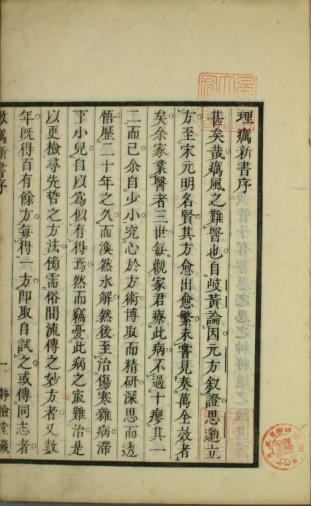 理癘新書序
甚矣哉癘風之難醫也自歧黃論因元方敘證思邈立
方至宋元明名賢其方愈出愈繁未嘗見奏萬全效者
矣余家業醫者三世每觀家君療此病不過十瘳其一
二而已余自少小究心於方術博取而精研深思而
悟歷二十年之久而渙然水解然後至治傷寒雜病滯
下小兒自以為似有得焉然而竊憂此病之最難治是
以更檢尋先哲之方法傍需俗間流傳之玅方者又數
年既得百有餘方每得一方即取自試之或傳同志者
癘新書序
一
靜儉堂藏